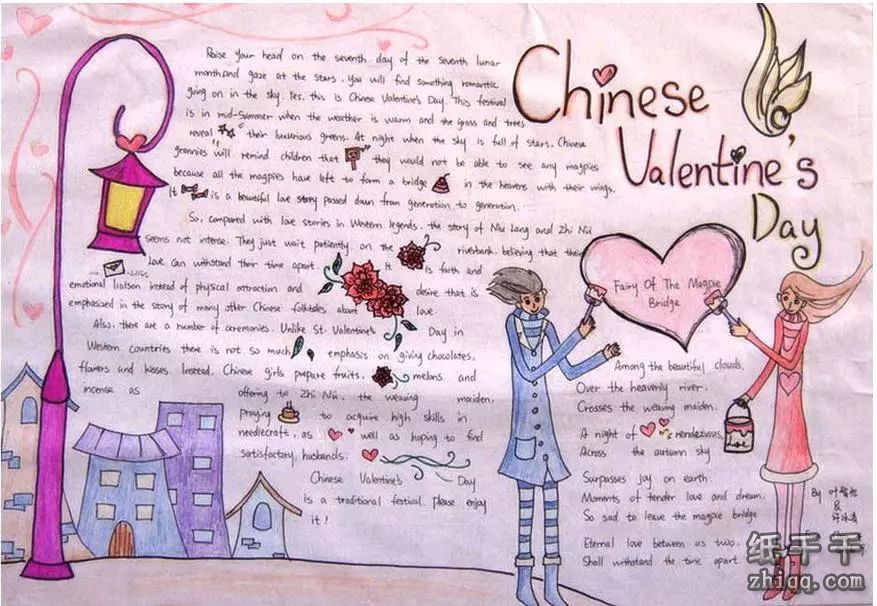 Chinese
Valentine's
Day
Raise your head on the seventh day of the seventh lunar
month and gaze at the stars. You will find something romantic
going on in the sky. Yes, this is Chinese Valentine's Day. This festival
is in mid-summer when the weather is warm and the grass and trees
reveal their luxurious greens. At night when the sky is full of stars, Chinese
grannies will remind children that they would not be able to see any magpies
because all the magpies have left to form a bridge in the heavens with their wings.
It is a beautiful love story passed down from generation to generation.
So, compared with love stories in Western legends, the story of Niu Lang and Zhi Nü
seems not intense. They just wait patiently on the riverbank, believing that their
love can withstand their time apart. It is faith and
emotional liaison instead of physical attraction and desire that is
emphasized in the story of many other Chinese folktales about love.
Also, there are a number of ceremonies. Unlike St. Valentine's Day in
Western countries there is not so much emphasis on giving chocolates,
flowers and kisses. Instead, Chinese girls prepare fruits, melons and
incense as offering to Zhi Nü, the weaving maiden,
praying to acquire high skills in
needlecraft, as well as hoping to find
satisfactory husbands.
Chinese Valentine's Day
is a traditional festival. please enjoy
it!
Fairy Of The Magpie
Bridge
Among the beautiful clouds,
Over the heavenly river,
Crosses the weaving maiden.
A night of rendezvous,
Across the autumn sky
Surpasses joy on earth.
Moments of tender love and dream,
So sad to leave the magpie bridge
Eternal love between us two,
Shall withstand the time apart.
Love
By
&
纸千千
zhiqq.com